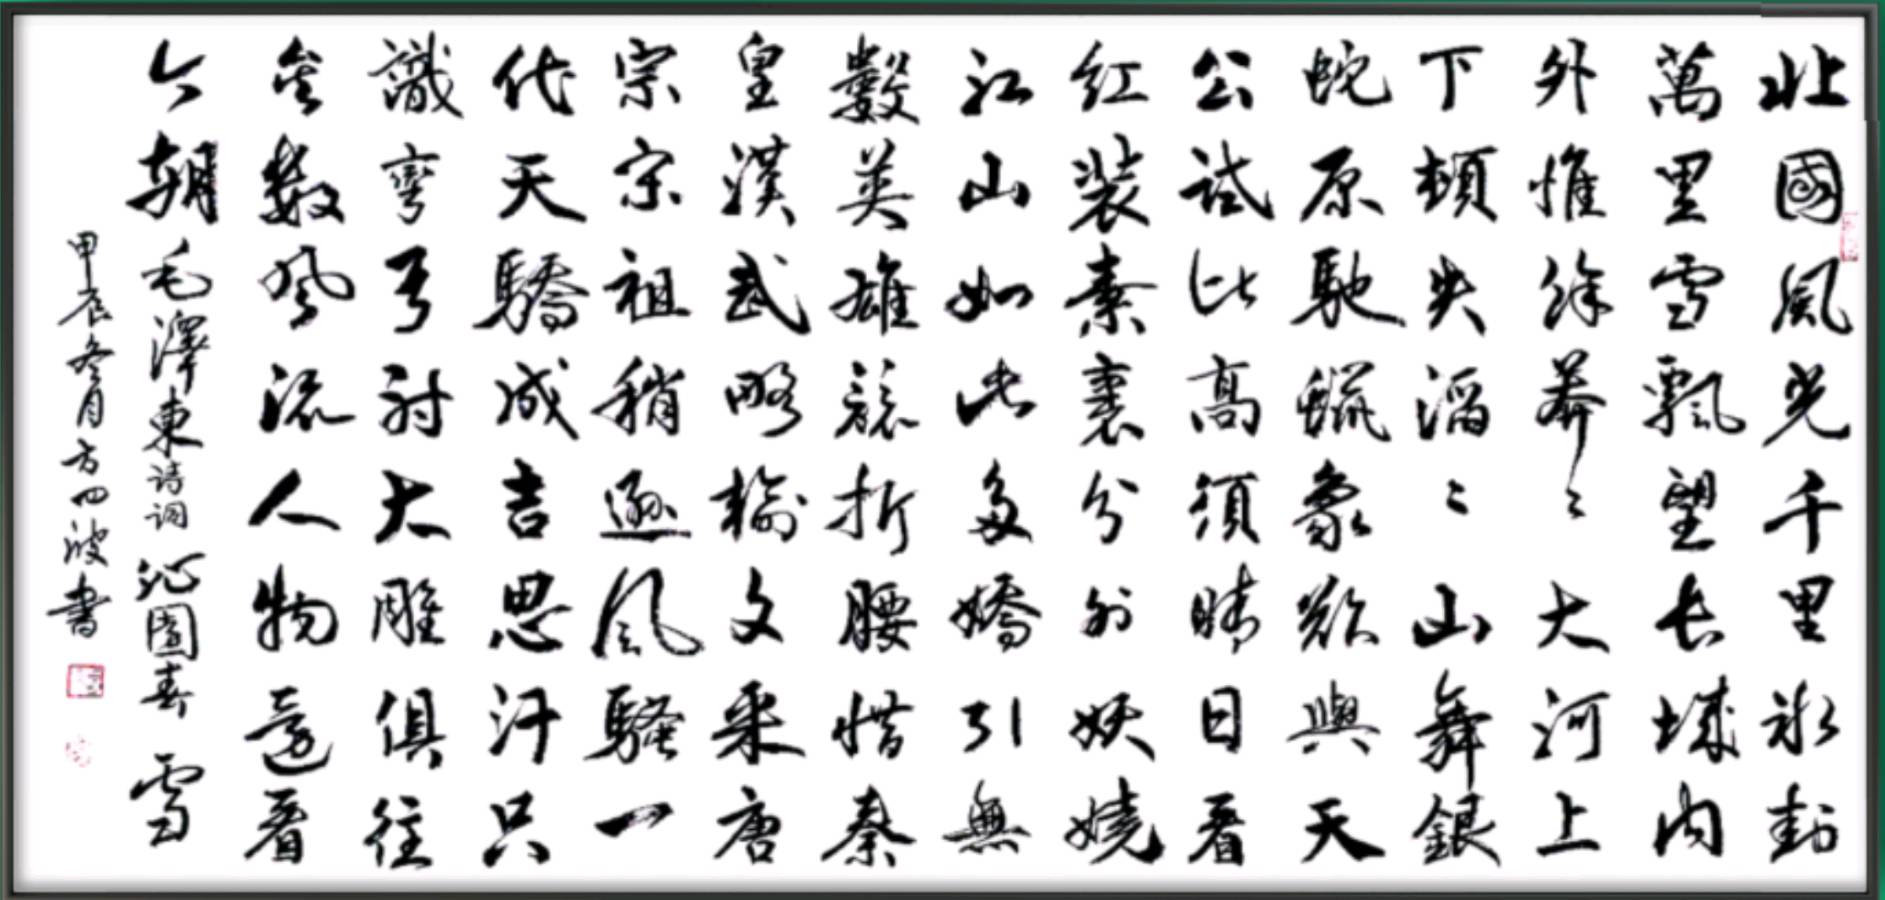 北國風光千里冰封
萬里雪飄望長城內
外惟餘莽〻大河上
下頓失滔〻山舞銀
蛇原馳蠟象欲與天
公試比高須晴日看
紅裝素裹分外妖嬈
江山如此多嬌引無
數英雄競折腰惜秦
皇漢武略輸文采唐
宗宋祖稍遜風騷一
代天驕成吉思汗只
識彎弓射大雕俱往
矣數風流人物還看
今朝 毛澤東詩詞 沁園春 雪
甲辰冬月方四波書